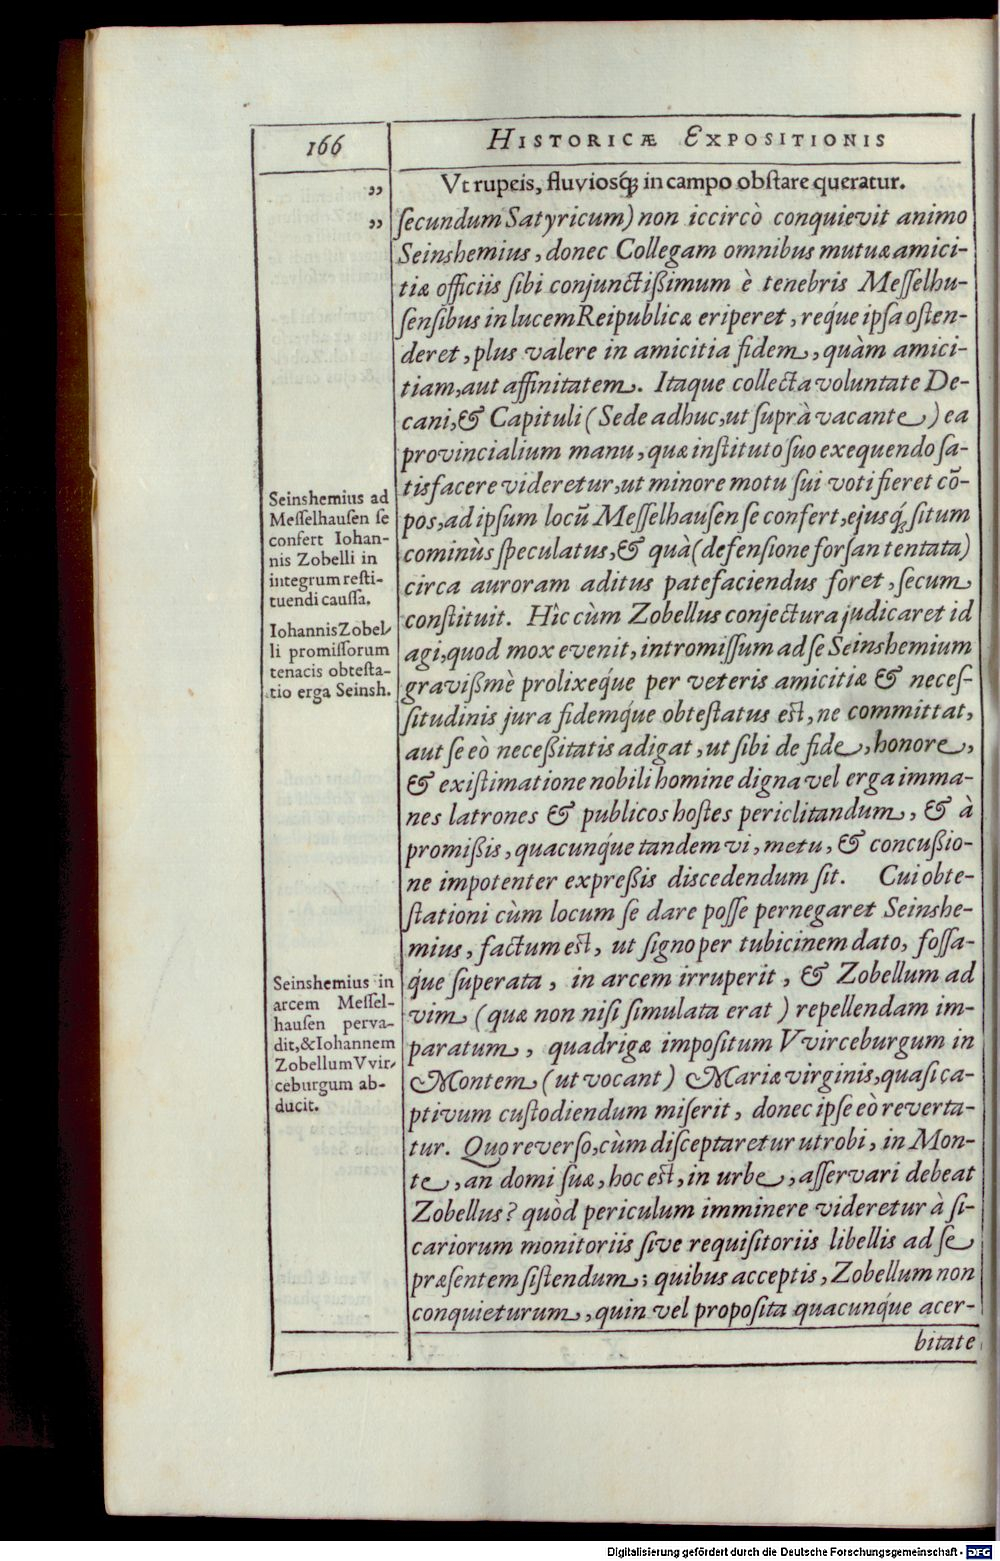 166
HISTORICÆ EXPOSITIONIS
„ Vt rupeis, fluviosq́; in campo obstare queratur.
„ ſecundum Satyricum) non iccircò conquievit animo
Seinshemius, donec Collegam omnibus mutuæ amici-
tiæ officiis ſibi conjunctißimum è tenebris Meſſelhu-
ſenſibus in lucem Reipublicæ eriperet, req́ue ipſa oſten-
deret, plus valere in amicitia fidem, quàm amici-
tiam, aut affinitatem. Itaque collecta voluntate De-
cani, & Capituli (Sede adhuc, ut ſuprà vacante) ea
provincialium manu, quæ inſtituto ſuo exequendo ſa-
tisfacere videretur, ut minore motu ſui voti fieret cō-
pos, ad ipſum locū Meſſelhauſen ſe confert, ejusq́; ſitum
cominùs ſpeculatus, & quà (defenſione forſan tentata)
circa auroram aditus patefaciendus foret, ſecum
conſtituit. Hîc cùm Zobellus conjectura judicaret id
agi, quod mox evenit, intromiſſum ad ſe Seinshemium
gravißmè prolixeq́ue per veteris amicitiæ & neceſ-
ſitudinis jura fidemq́ue obteſtatus eſt, ne committat,
aut ſe eò neceßitatis adigat, ut ſibi de fide, honore,
& exiſtimatione nobili homine digna vel erga imma-
nes latrones & publicos hoſtes periclitandum, & à
promißis, quacunq́ue tandem vi, metu, & concußio-
ne impotenter expreßis discedendum ſit. Cui obte-
ſtationi cùm locum ſe dare poſſe pernegaret Seinshe-
mius, factum eſt, ut ſigno per tubicinem dato, foſſa-
q́ue ſuperata, in arcem irruperit, & Zobellum ad
vim (quæ non niſi ſimulata erat) repellendam im-
paratum, quadrigæ impoſitum Vvirceburgum in
Montem (ut vocant) Mariæ virginis, quaſi ca-
ptivum cuſtodiendum miſerit, donec ipſe eò reverta-
tur. Quo reverſo, cùm diſceptaretur utrobi, in Mon-
te, an domi ſuæ, hoc eſt, in urbe, aſſervari debeat
Zobellus? quòd periculum imminere videretur à ſi-
cariorum monitoriis ſive requiſitoriis libellis ad ſe
præſentem ſiſtendum; quibus acceptis, Zobellum non
conquieturum, quin vel propoſita quacunq́ue acer-
bitate
Seinshemius ad
Meſſelhauſen ſe
confert Iohan-
nis Zobelli in
integrum reſti-
tuendi cauſſa.
Iohannis Zobel-
li promiſſorum
tenacis obteſta-
tio erga Seinsh.
Seinshemius in
arcem Meſſel-
hauſen perva-
dit, & Iohannem
Zobellum Vvir-
ceburgum ab-
ducit.
Digitalisierung gefördert durch die Deutsche Forschungsgemeinschaft - DFG